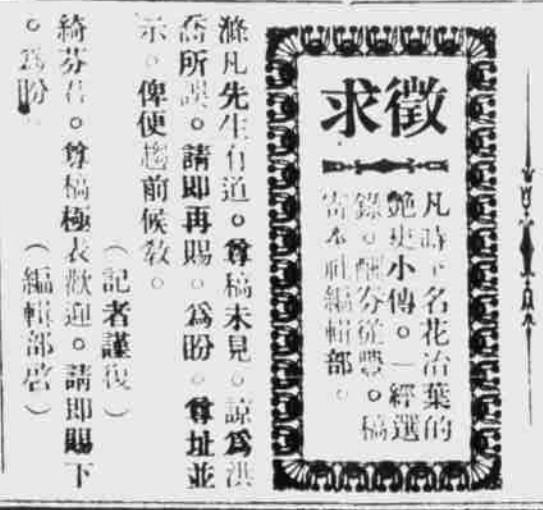 徵求
凡時下名花冶葉的
艷史小傳。一經選
錄。酬勞從豐。稿
寄本社編輯部。
滌凡先生有道。尊稿未見。諒爲洪
喬所誤。請即再賜。爲盼。尊址並
示。俾便趨前候敎。
（記者謹復）
綺芬君。尊稿極表歡迎。請即賜下
。爲盼。
（編輯部啓）